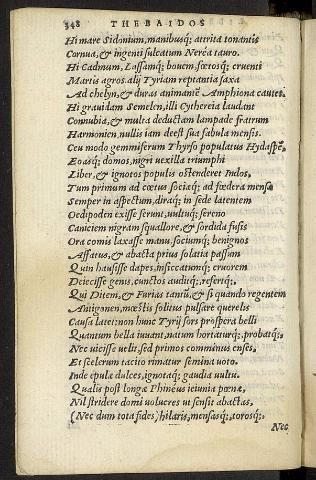 348 THEBAIDOS
Hi mare Sidonium, manibusq; attrita tonantis
Cornua, & ingenti sulcatum Nerea tauro.
Hi Cadmum, Lassamq; bouem, fœtosq; cruenti
Martis agros. alij Tyriam reptantia saxa
Ad chelyn, & duras animantē Amphiona cautes.
Hi grauidam Semelen, illi Cythereia laudant
Connubia, & multa deductam lampade fratrum
Harmonien. nullis iam deest sua fabula mensis.
Ceu modo gemmiferum Thyrso populatus Hydaspē,
Eoasq; domos, nigri uexilla triumphi
Liber, & ignotos populis ostenderet Indos,
Tum primum ad cœtus sociaq; ad fœdera mensæ
Semper in aspectum, diraq; in sede latentem
Oedipoden exisse ferunt, uultuq; sereno
Caniciem nigram squallore, & sordida fusis
Ora comis laxasse manu, sociumq; benignos
Affatus, & abacta prius solatia passum
Quin hausisse dapes, insiccatumq; cruorem
Deiecisse genis, cunctos auditq;, refertq;,
Qui Ditem, & Furias tantū, & si quando regentem
Antigonen, mœstis solitus pulsare querelis
Causa latet: non hunc Tyrij sors prospera belli
Quantum bella iuuant, natum hortaturq;, probatq;,
Nec uicisse uelit. sed primos comminus enses,
Et scelerum tacito rimatur semina uoto.
Inde epulæ dulces, ignotaq; gaudia uultu.
Qualis post longæ Phineus ieiunia pœnæ,
Nil stridere domi uolucres ut sensit abactas,
(Nec dum tota fides) hilaris, mensasq;, torosq;,
Nec